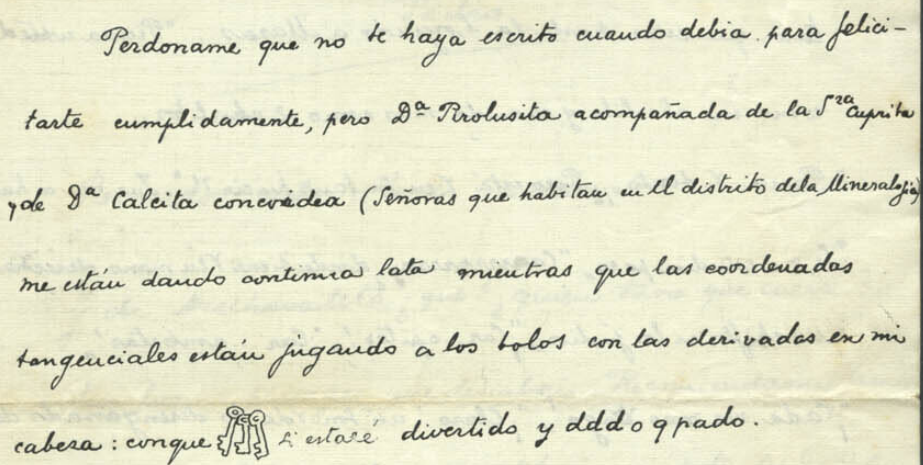 Perdoname que no te haya escrito cuando debia para felici-
tarte cumplidamente, pero Dª Pirolusita acompañada de la Sra Cuprita
y de Dª Calcita concoidea (Señoras que habitan en el distrito de la Mineralogia)
me están dando continua lata mientras que las coordenadas
tangenciales están jugando a los bolos con las derivadas en mi
cabeza: conque si estaré divertido y dddo q pado.